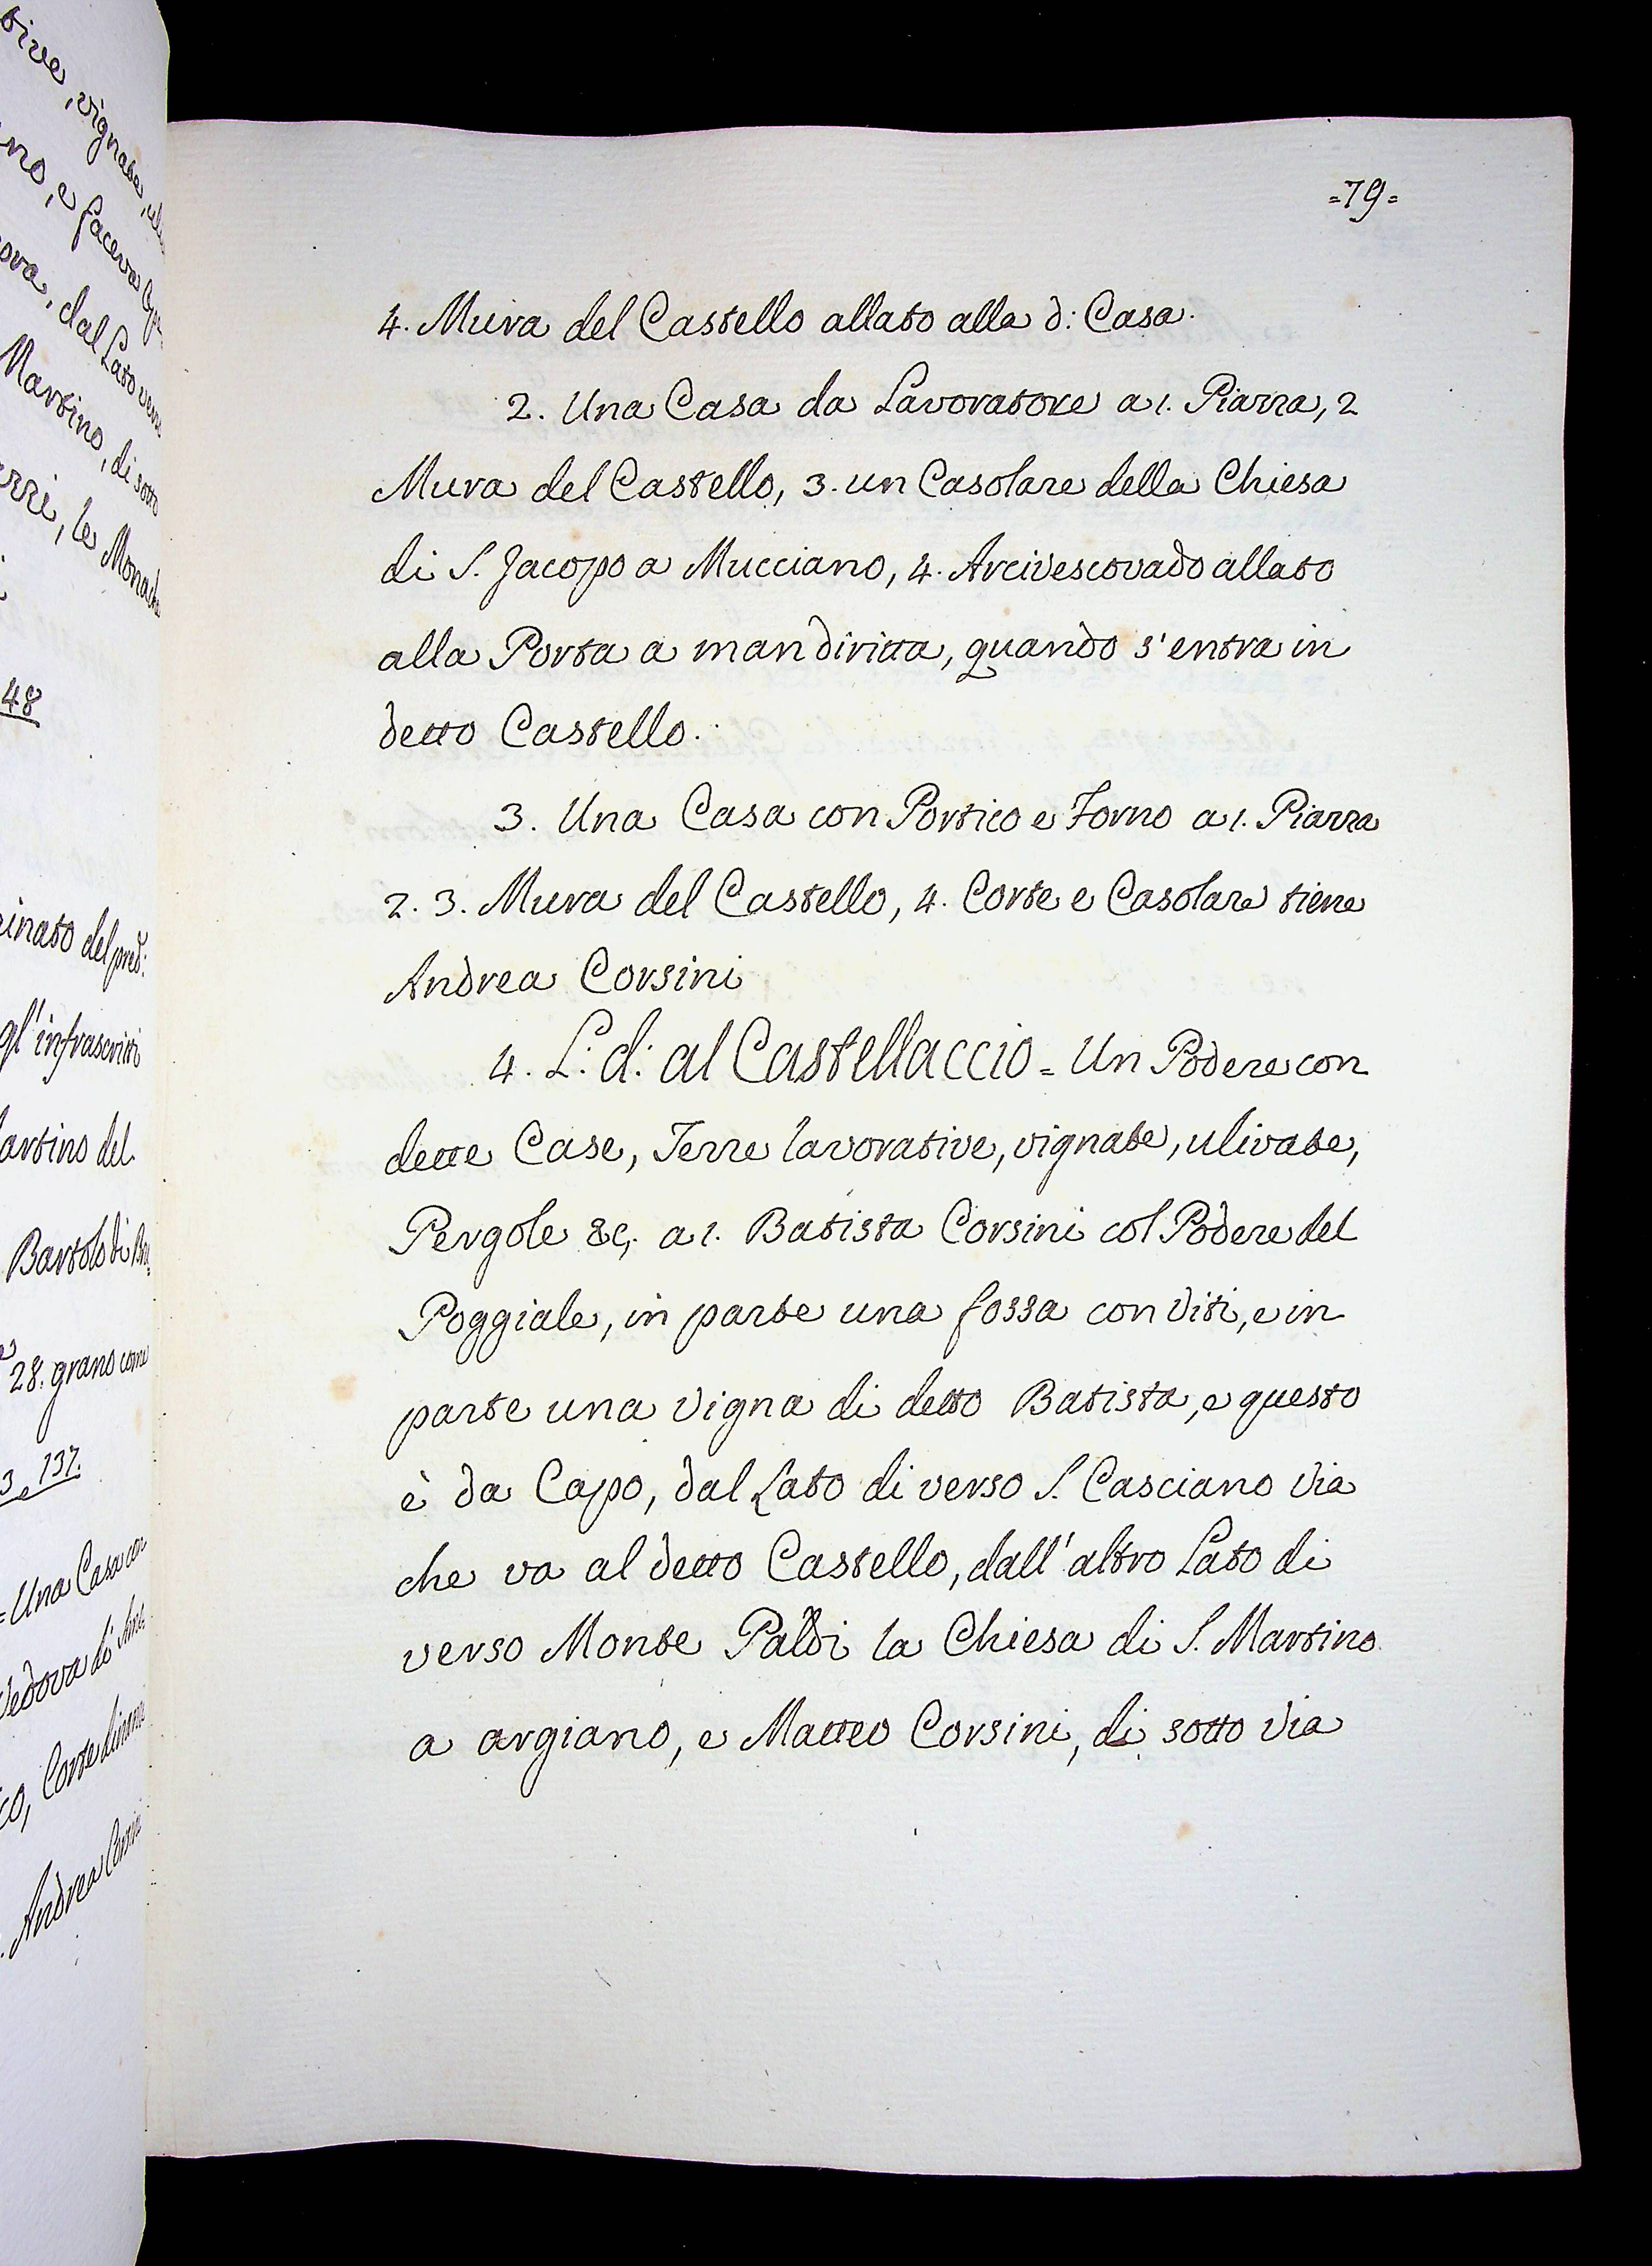 =79=
4. Mura del Castello allato alla d: Casa.
2. Una Casa da Lavoratore a 1. Piazza, 2
Mura del Castello, 3. un Casolare della Chiesa
di S. Jacopo a Mucciano, 4. Arcivescovado allato
alla Porta a man diritta, quando s'entra in
detto Castello.
3. Una Casa con Portico e Forno a 1. Piazza
2. 3. Mura del Castello, 4. Corte e Casolare tiene
Andrea Corsini
4. L: d: al Castellaccio = Un Podere con
dette Case, Terre lavorative, vignate, ulivate,
Pergole &c. a 1. Batista Corsini col Podere del
Poggiale, in parte una fossa con Viti, e in
parte una Vigna di detto Batista, e questo
è da Capo, dal Lato di verso S. Casciano Via
che va al detto Castello, dall'altro Lato di
verso Monte Paldi la Chiesa di S. Martino
a argiano, e Matteo Corsini, di sotto Via
48
gl'infrascritti
Bartolo di
28. grano come
137.
=Una Casa con
Vedova di
Andrea Corsini